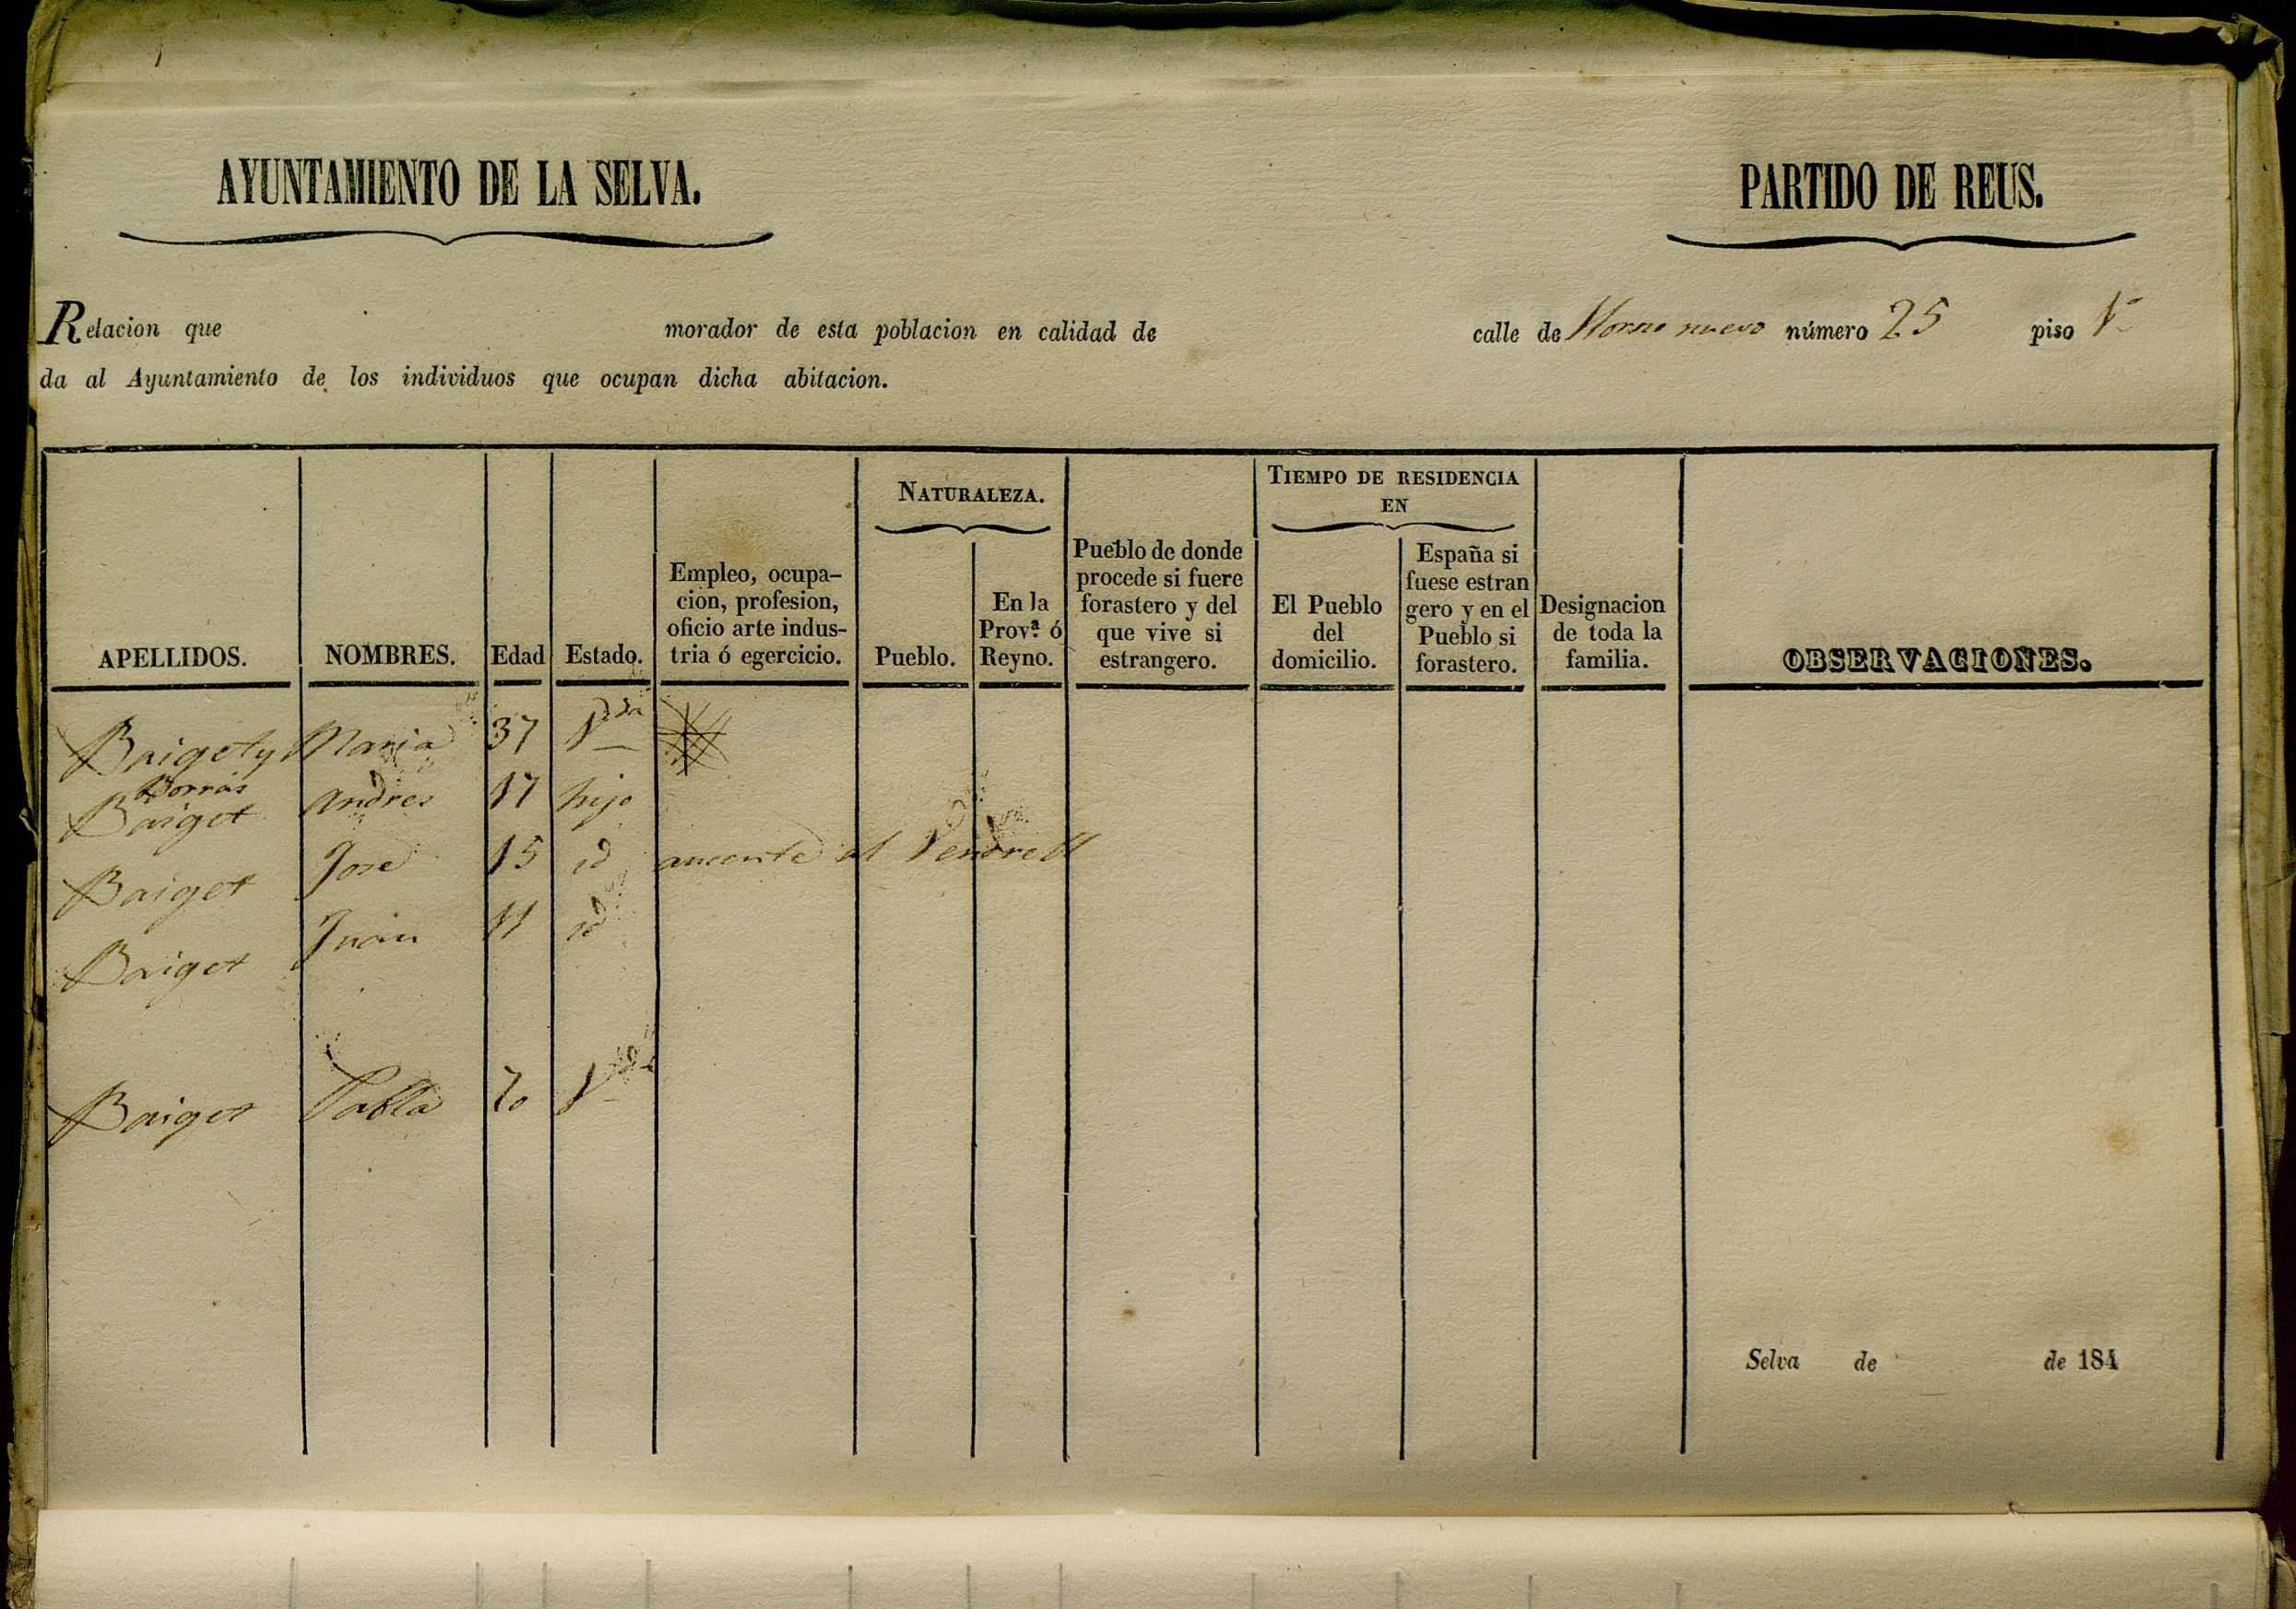 AYUNTAMIENTO DE LA SELVA.
PARTIDO DE REUS.
Relacion que morador de esta poblacion en calidad de calle de Horno nuevo número 25 piso 1º
da al Ayuntamiento de los individuos que ocupan dicha abitacion.
APELLIDOS.
NOMBRES.
Edad
Estado.
Empleo, ocupa-
cion, profesion,
oficio arte indus-
tria ó egercicio.
NATURALEZA.
Pueblo.
En la
Prov.ª ó
Reyno.
Pueblo de donde
procede si fuere
forastero y del
que vive si
estrangero.
TIEMPO DE RESIDENCIA
EN
El Pueblo
del
domicilio.
España si
fuese estran
gero y en el
Pueblo si
forastero.
Designacion
de toda la
familia.
OBSERVACIONES.
Baiget y Maria 37 Vda
Borrás
Baiget Andres 17 hijo
Baiget Jose 15 id ausente al Vendrell
Baiget Juan 11 id
Baiget Pabla 70 Vda
Selva de de 184